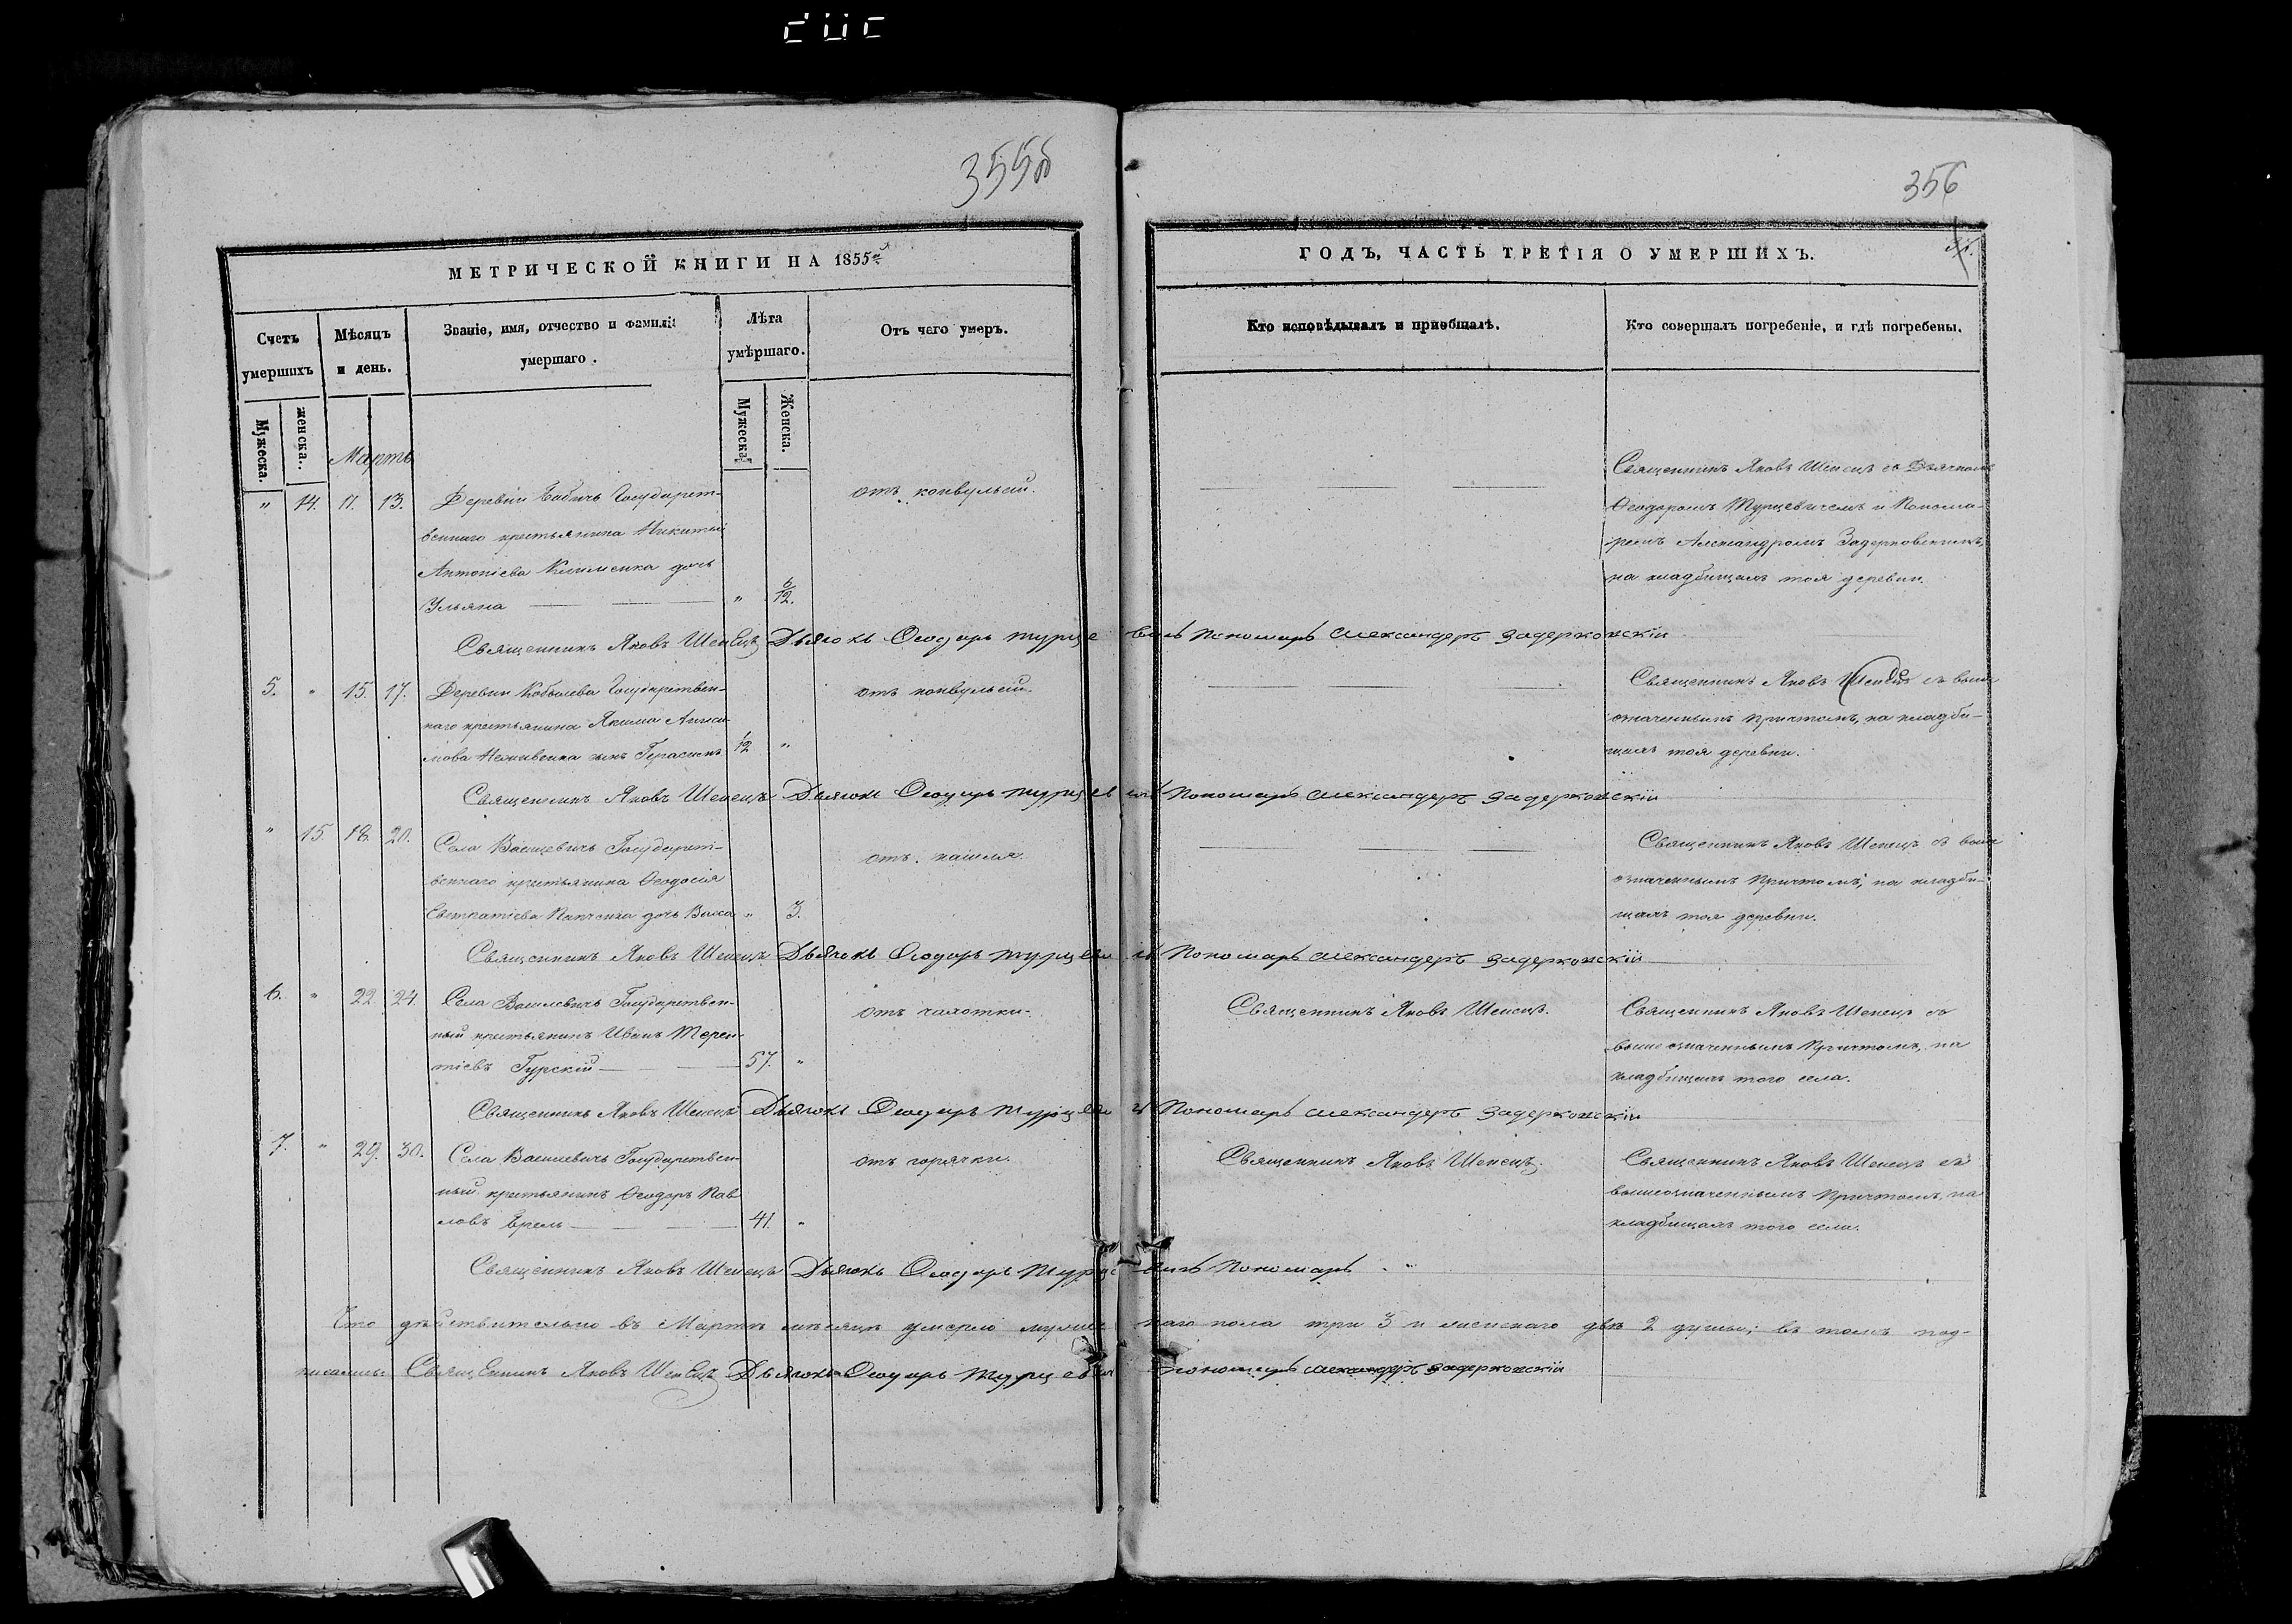 355б
356
МЕТРИЧЕСКОЙ КНИГИ НА 1855й
ГОДЪ, ЧАСТЬ ТРЕТІЯ О УМЕРШИХЪ.
Счетъ умершихъ
Мѣсяцъ и день.
Званіе, имя, отчество и фамилія умершаго.
Лѣта умѣршаго.
Отъ чего умеръ.
Кто исповѣдывалъ и приобщалъ.
Кто совершалъ погребеніе, и гдѣ погребены.
Мужеска.
женска.
Мужеска
Женска.
Мартъ
" 14. 11. 13. Деревни Бабичъ Государст-
веннаго крестьянина Никиты
Антоніева Клименка дочь
Ульяна " 6/12.
отъ конвульсій.
Священникъ Яковъ Шепецъ съ Дьячкомъ
Ѳеодоромъ Турцевичемъ и Понома-
ремъ Александромъ Задерковскимъ,
на кладбищахъ тоя деревни.
Священникъ Яковъ Шепецъ Дьячокъ Ѳеодоръ Турцевичъ Пономарь Александеръ Задерковскій
5. " 15. 17. Деревни Кобылева Государствен-
наго крестьянина Якима Аниси-
мова сынъ Герасимъ 1/12 "
отъ конвульсій.
Священникъ Яковъ Шепецъ съ выше
означеннымъ Причтомъ, на кладби-
щахъ тоя деревни.
Священникъ Яковъ Шепецъ Дьячокъ Ѳеодоръ Турцевичъ Пономарь Александеръ Задерковскій
" 15. 18. 20. Села Василевичъ Государст-
веннаго крестьянина Ѳеодосія
Евстратіева дочь Васса " 3.
отъ кашля.
Священникъ Яковъ Шепецъ съ выше
означеннымъ Причтомъ, на кладби-
щахъ тоя деревни.
Священникъ Яковъ Шепецъ Дьячокъ Ѳеодоръ Турцевичъ Пономарь Александеръ Задерковскій
6. " 22. 24. Села Василевичъ Государствен-
ный крестьянинъ Иванъ Терен-
тіевъ Гурскій 57. "
отъ чахотки.
Священникъ Яковъ Шепецъ.
Священникъ Яковъ Шепецъ съ
вышеозначеннымъ Причтомъ, на
кладбищахъ того села.
Священникъ Яковъ Шепецъ Дьячокъ Ѳеодоръ Турцевичъ Пономарь Александеръ Задерковскій
7. " 29. 30. Села Василевичъ Государствен-
ный крестьянинъ Ѳеодоръ Пав-
ловъ 41. "
отъ горячки.
Священникъ Яковъ Шепецъ.
Священникъ Яковъ Шепецъ съ
вышеозначеннымъ Причтомъ, на
кладбищахъ того села.
Священникъ Яковъ Шепецъ Дьячокъ Ѳеодоръ Турцевичъ Пономарь
Что дѣйствительно въ Мартѣ мѣсяцѣ умерло мужескаго пола три 3 и женскаго двѣ 2 души; въ томъ под-
писались: Священникъ Яковъ Шепецъ Дьячокъ Ѳеодоръ Турцевичъ Пономарь Александеръ Задерковскій